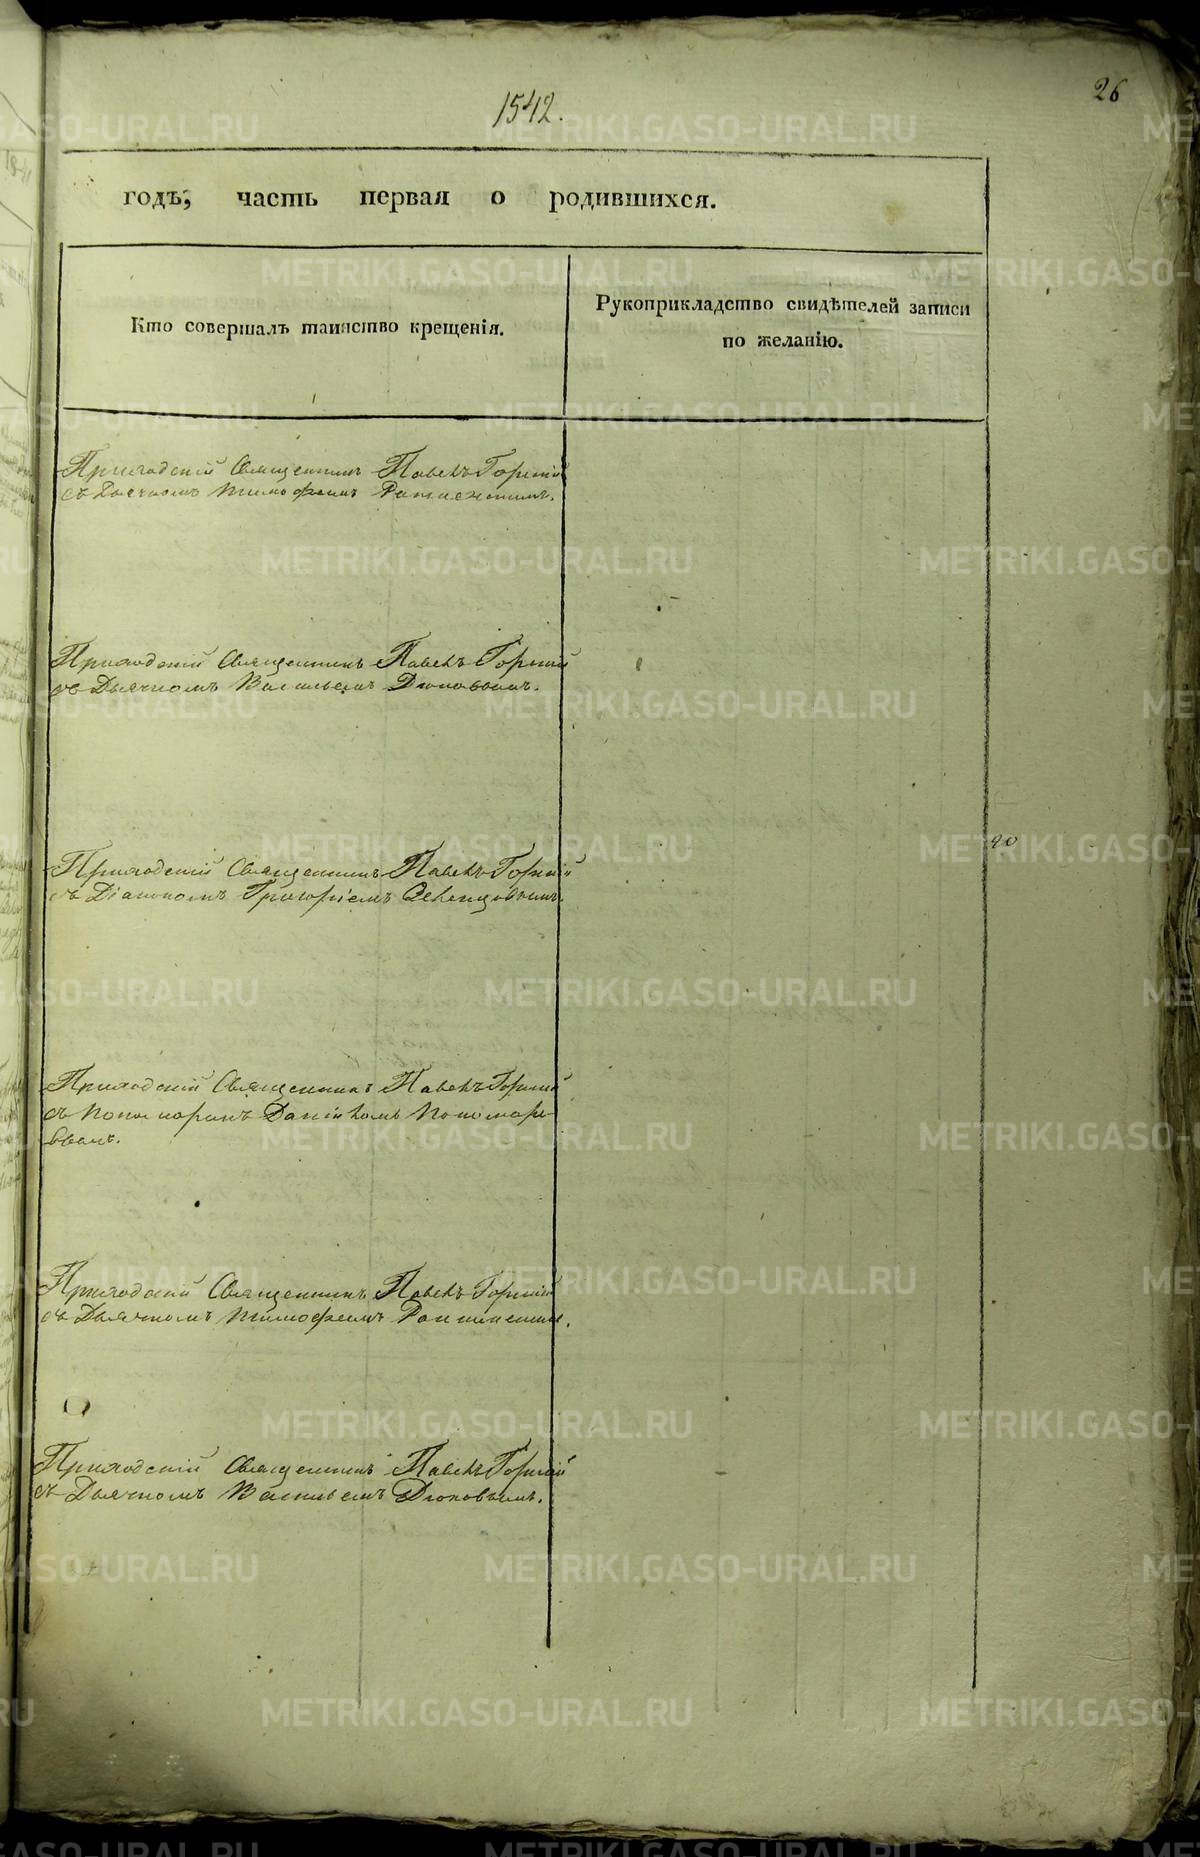 26
1542.
годъ, часть первая о родившихся.
Кто совершалъ таинство крещенія.
Рукоприкладство свидѣтелей записи
по желанію.
Приходскій Священникъ Павелъ Горный
съ Дьячкомъ Тимофеемъ
Приходскій Священникъ Павелъ Горный
съ Дьячкомъ Васильемъ Дюковымъ.
20
Приходскій Священникъ Павелъ Горный
съ Діакономъ Григоріемъ
Приходскій Священникъ Павелъ Горный
съ Пономаремъ Даніиломъ Пономаре-
вымъ.
Приходскій Священникъ Павелъ Горный
съ Дьячкомъ Тимофеемъ
Приходскій Священникъ Павелъ Горный
съ Дьячкомъ Васильемъ Дюковымъ.
METRIKI.GASO-URAL.RU